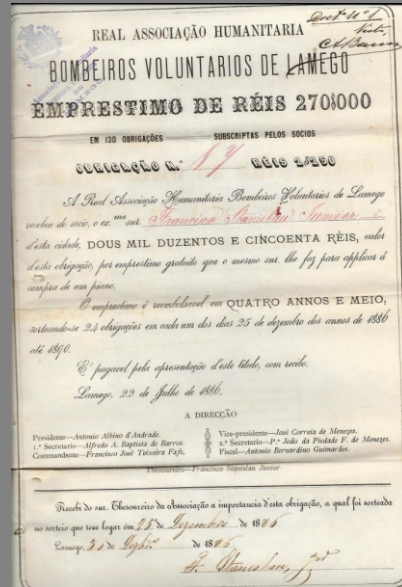 Doc. Nº 1
Visto,
REAL ASSOCIAÇÃO HUMANITARIA
BOMBEIROS VOLUNTARIOS DE LAMEGO
EMPRESTIMO DE RÉIS 270$000
EM 120 OBRIGAÇÕES SUBSCRIPTAS PELOS SOCIOS
OBRIGAÇÃO N.º 17 RÉIS 2$250
A Real Associação Humanitaria Bombeiros Voluntarios de Lamego
recebeu do socio, o ex.mo snr. Francisco Stanislau Junior
d'esta cidade, DOUS MIL DUZENTOS E CINCOENTA RÉIS, valor
d'esta obrigação, por emprestimo gratuito que o mesmo snr. lhe faz para applicar á
compra de um piano.
O emprestimo é reembolsavel em QUATRO ANNOS E MEIO,
sorteando-se 24 obrigações em cada um dos dias 25 de dezembro dos annos de 1886
até 1890.
E' pagavel pela apresentação d'este titulo, com recibo.
Lamego, 22 de Julho de 1886.
A DIRECÇÃO
Presidente—Antonio Albino d'Andrade.
1.º Secretario—Alfredo A. Baptista de Barros.
Commandante—Francisco José Teixeira Fafe.
Vice-presidente—José Correia de Menezes.
2.º Secretario—P.e João da Piedade F. de Menezes.
Fiscal—Antonio Bernardino Guimarães.
Thesoureiro—Francisco Stanislau Junior
Recebi do snr. Thesoureiro da Associação a importancia d'esta obrigação, a qual foi sorteada
no sorteio que teve logar em 25 de Dezembro de 1886
Lamego, 30 de Dezbr.º de 1886
F. Stanislau Jor